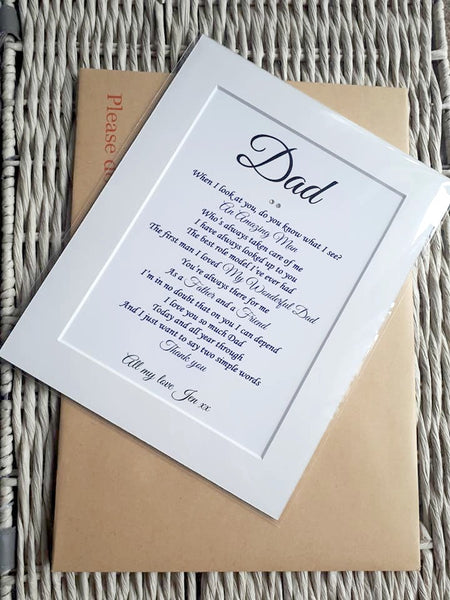 Please d
Dad
When I look at you, do you know what I see?
An Amazing Man
Who's always taken care of me
I have always looked up to you
The best role model I've ever had
The first man I loved My Wonderful Dad
You're always there for me
As a Father and a Friend
I'm in no doubt that on you I can depend
I love you so much Dad
Today and all year through
And I just want to say two simple words
Thank you
All my love, Jen xx